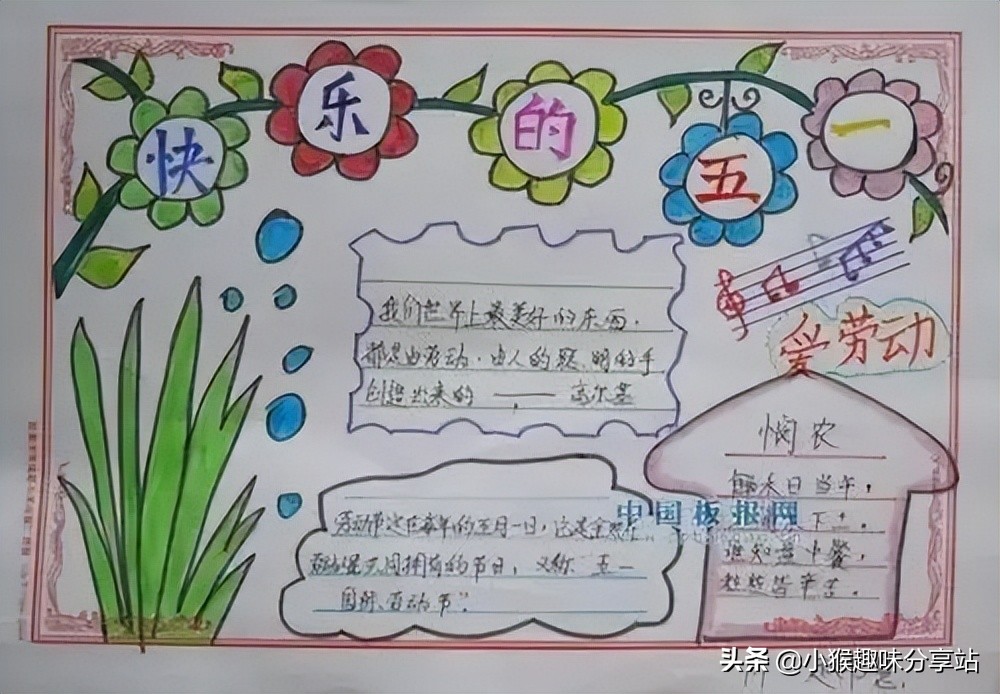 快乐的五一
我们世界上最美好的东西,
都是由劳动、由人的聪明的手
创造出来的 —— 高尔基
爱劳动
悯农
锄禾日当午,
下土。
谁知盘中餐,
粒粒皆辛苦。
劳动节定在每年的五月一日,这是全
拥有的节日,又称"五一
国际劳动节"。
中国板报网
头条 @小猴趣味分享站